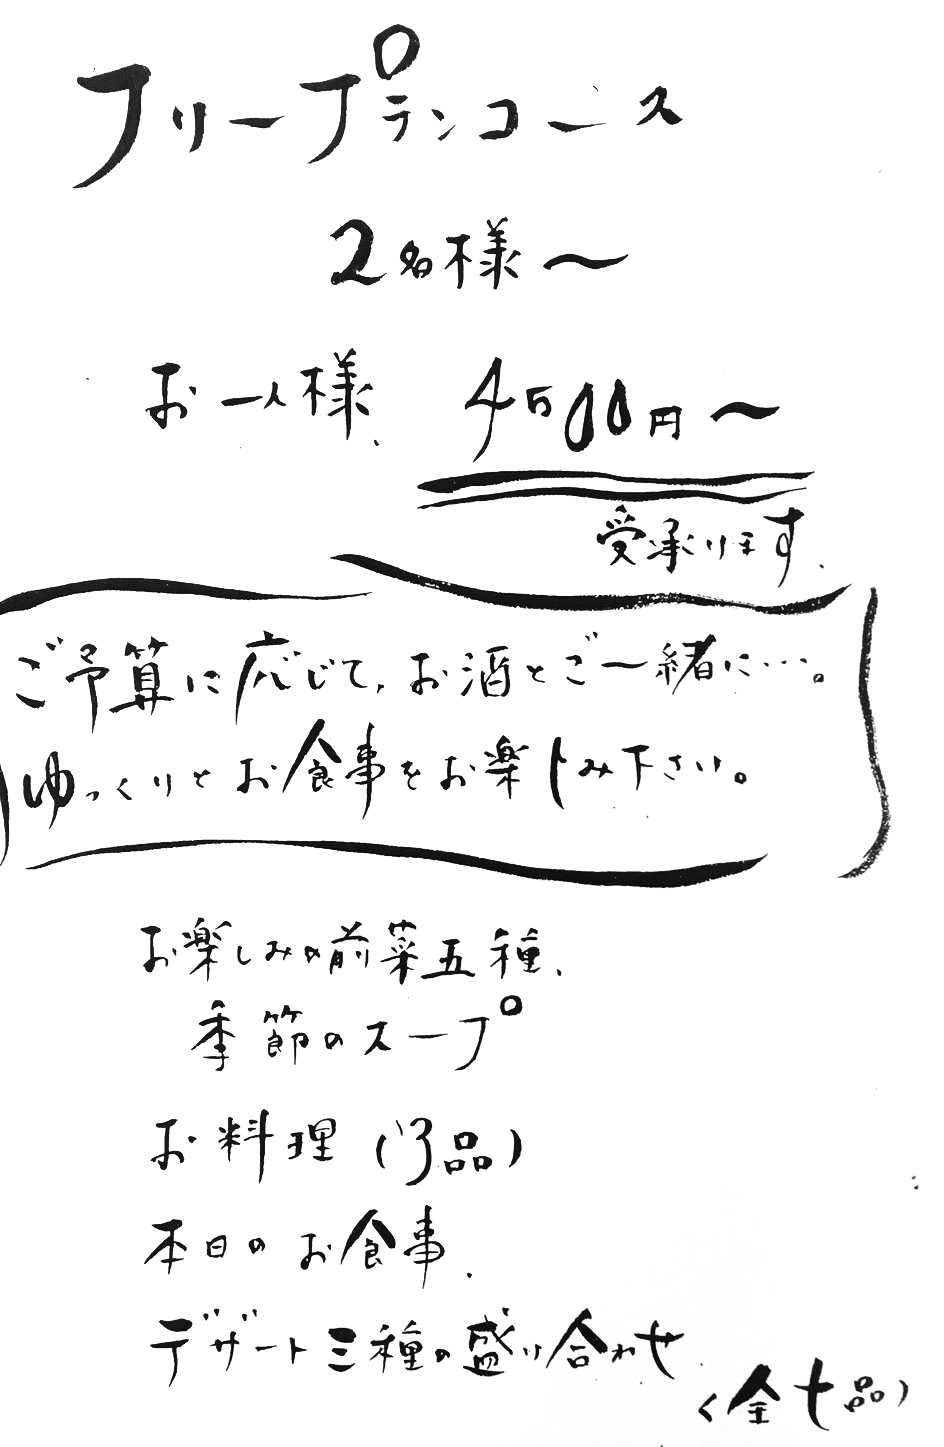 フリープランコース
2名様〜
お一人様 4500円〜
受承ります.
ご予算に応じて,お酒とご一緒に…。
ゆっくりとお食事をお楽しみ下さい。
お楽しみの前菜五種.
季節のスープ
お料理(3品)
本日のお食事.
デザート三種の盛り合わせ
(全七品)